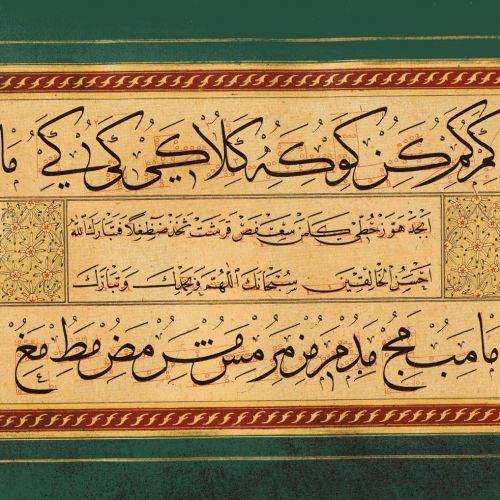 كم كم كن كو كه كلا كي كي ما
ابجد هوز حطي كلمن سعفص قرشت ثخذ ضظغلا فتبارك الله
احسن الخالقين سبحانك اللهم وبحمدك وتبارك
ما مب مج مد مر مز مر مس مض مط مع